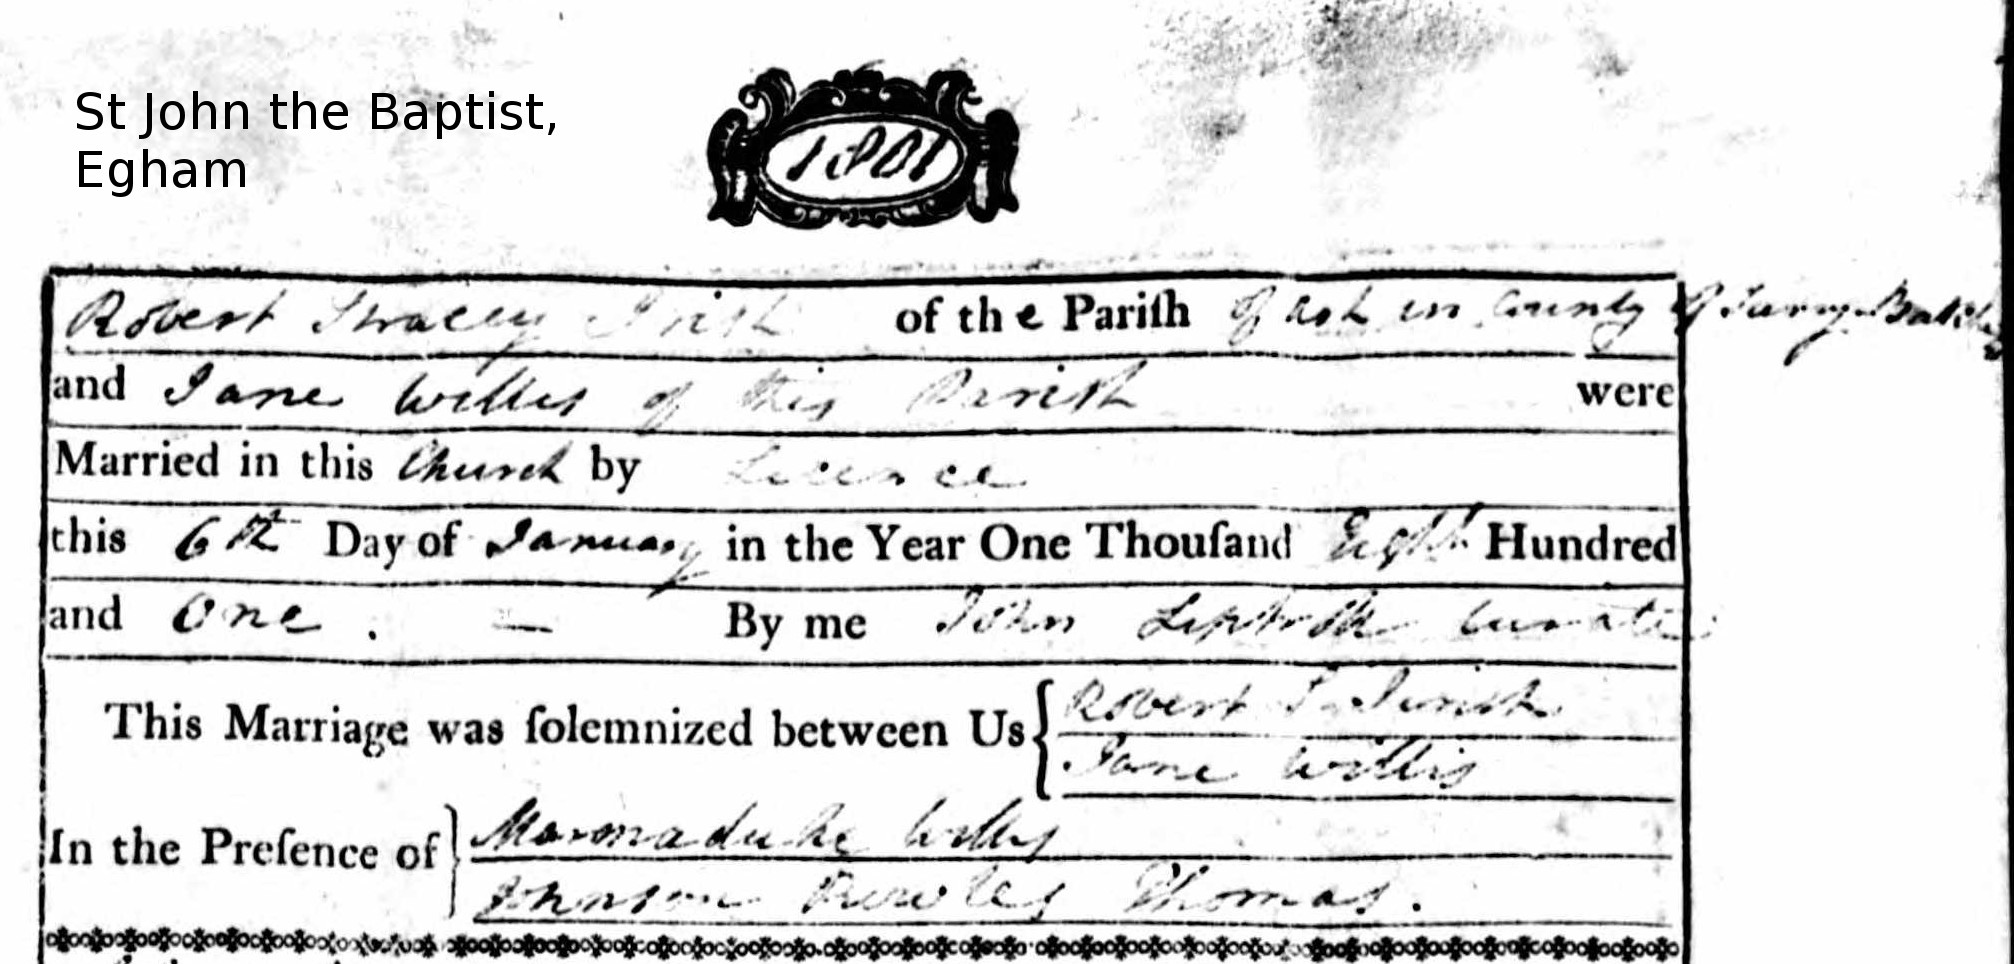 St John the Baptist,
Egham
1801
Robert Stracey Irish of the Pariſh of Ash in County of Surry Batch
and Jane Willis of this Parish were
Married in this Church by Licence
this 6th Day of January in the Year One Thouſand Eight Hundred
and One . — By me John Liptrott Curate
This Marriage was ſolemnized between Us
Robert S. Irish
Jane Willis
In the Preſence of
Marmaduke Willis
Johnson Thomas.